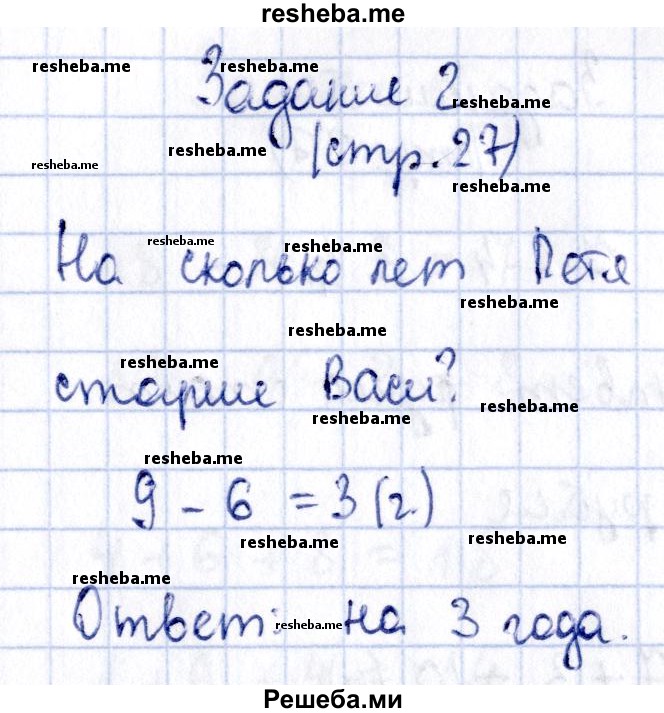 resheba.me
resheba.me resheba.me
Задание 2 resheba.me
resheba.me resheba.me
(стр. 27)
resheba.me
resheba.me resheba.me
На сколько лет Петя
resheba.me
resheba.me
resheba.me
старше Васи?
resheba.me resheba.me
resheba.me
9 - 6 = 3 (г.)
resheba.me resheba.me
resheba.me
Ответ: resheba.me на 3 года.
Решеба.ми